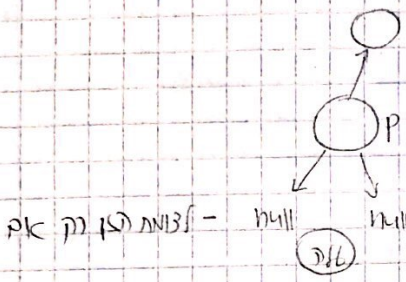 P
null null - לצומת רק אם
עלה